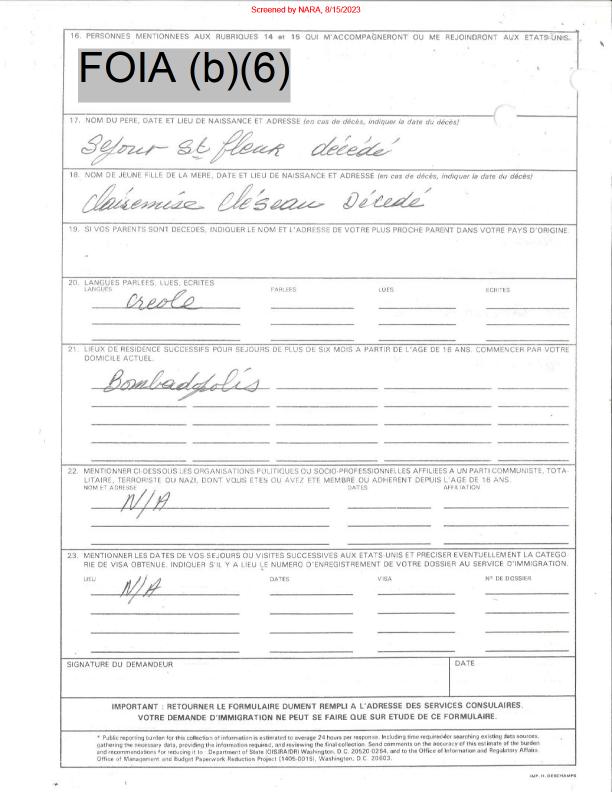 Screened by NARA, 8/15/2023
16. PERSONNES MENTIONNEES AUX RUBRIQUES 14 et 15 QUI M'ACCOMPAGNERONT OU ME REJOINDRONT AUX ETATS-UNIS.
FOIA (b)(6)
17. NOM DU PERE, DATE ET LIEU DE NAISSANCE ET ADRESSE (en cas de décès, indiquer la date du décès)
Sejour St fleur décédé
18. NOM DE JEUNE FILLE DE LA MERE, DATE ET LIEU DE NAISSANCE ET ADRESSE (en cas de décès, indiquer la date du décès)
Clairemise Cléseau Décédé
19. SI VOS PARENTS SONT DECEDES, INDIQUER LE NOM ET L'ADRESSE DE VOTRE PLUS PROCHE PARENT DANS VOTRE PAYS D'ORIGINE.
20. LANGUES PARLEES, LUES, ECRITES
LANGUES PARLEES LUES ECRITES
Creole
21. LIEUX DE RESIDENCE SUCCESSIFS POUR SEJOURS DE PLUS DE SIX MOIS A PARTIR DE L'AGE DE 16 ANS. COMMENCER PAR VOTRE
DOMICILE ACTUEL.
Bombadopolis
22. MENTIONNER CI-DESSOUS LES ORGANISATIONS POLITIQUES OU SOCIO-PROFESSIONNELLES AFFILIEES A UN PARTI COMMUNISTE, TOTA-
LITAIRE, TERRORISTE OU NAZI, DONT VOUS ETES OU AVEZ ETE MEMBRE OU ADHERENT DEPUIS L'AGE DE 16 ANS.
NOM ET ADRESSE DATES AFFILIATION
N/A
23. MENTIONNER LES DATES DE VOS SEJOURS OU VISITES SUCCESSIVES AUX ETATS-UNIS ET PRECISER EVENTUELLEMENT LA CATEGO-
RIE DE VISA OBTENUE. INDIQUER S'IL Y A LIEU LE NUMERO D'ENREGISTREMENT DE VOTRE DOSSIER AU SERVICE D'IMMIGRATION.
LIEU DATES VISA N° DE DOSSIER
N/A
SIGNATURE DU DEMANDEUR DATE
IMPORTANT : RETOURNER LE FORMULAIRE DUMENT REMPLI A L'ADRESSE DES SERVICES CONSULAIRES.
VOTRE DEMANDE D'IMMIGRATION NE PEUT SE FAIRE QUE SUR ETUDE DE CE FORMULAIRE.
* Public reporting burden for this collection of information is estimated to average 24 hours per response. Including time required for searching existing data sources,
gathering the necessary data, providing the information required, and reviewing the final collection. Send comments on the accuracy of this estimate of the burden
and recommendations for reducing it to : Department of State (OIS/RA/DR) Washington, D.C. 20520 0264, and to the Office of Information and Regulatory Affairs.
Office of Management and Budget Paperwork Reduction Project (1405-0015), Washington D.C. 20603.
IMP. H. DESCHAMPS